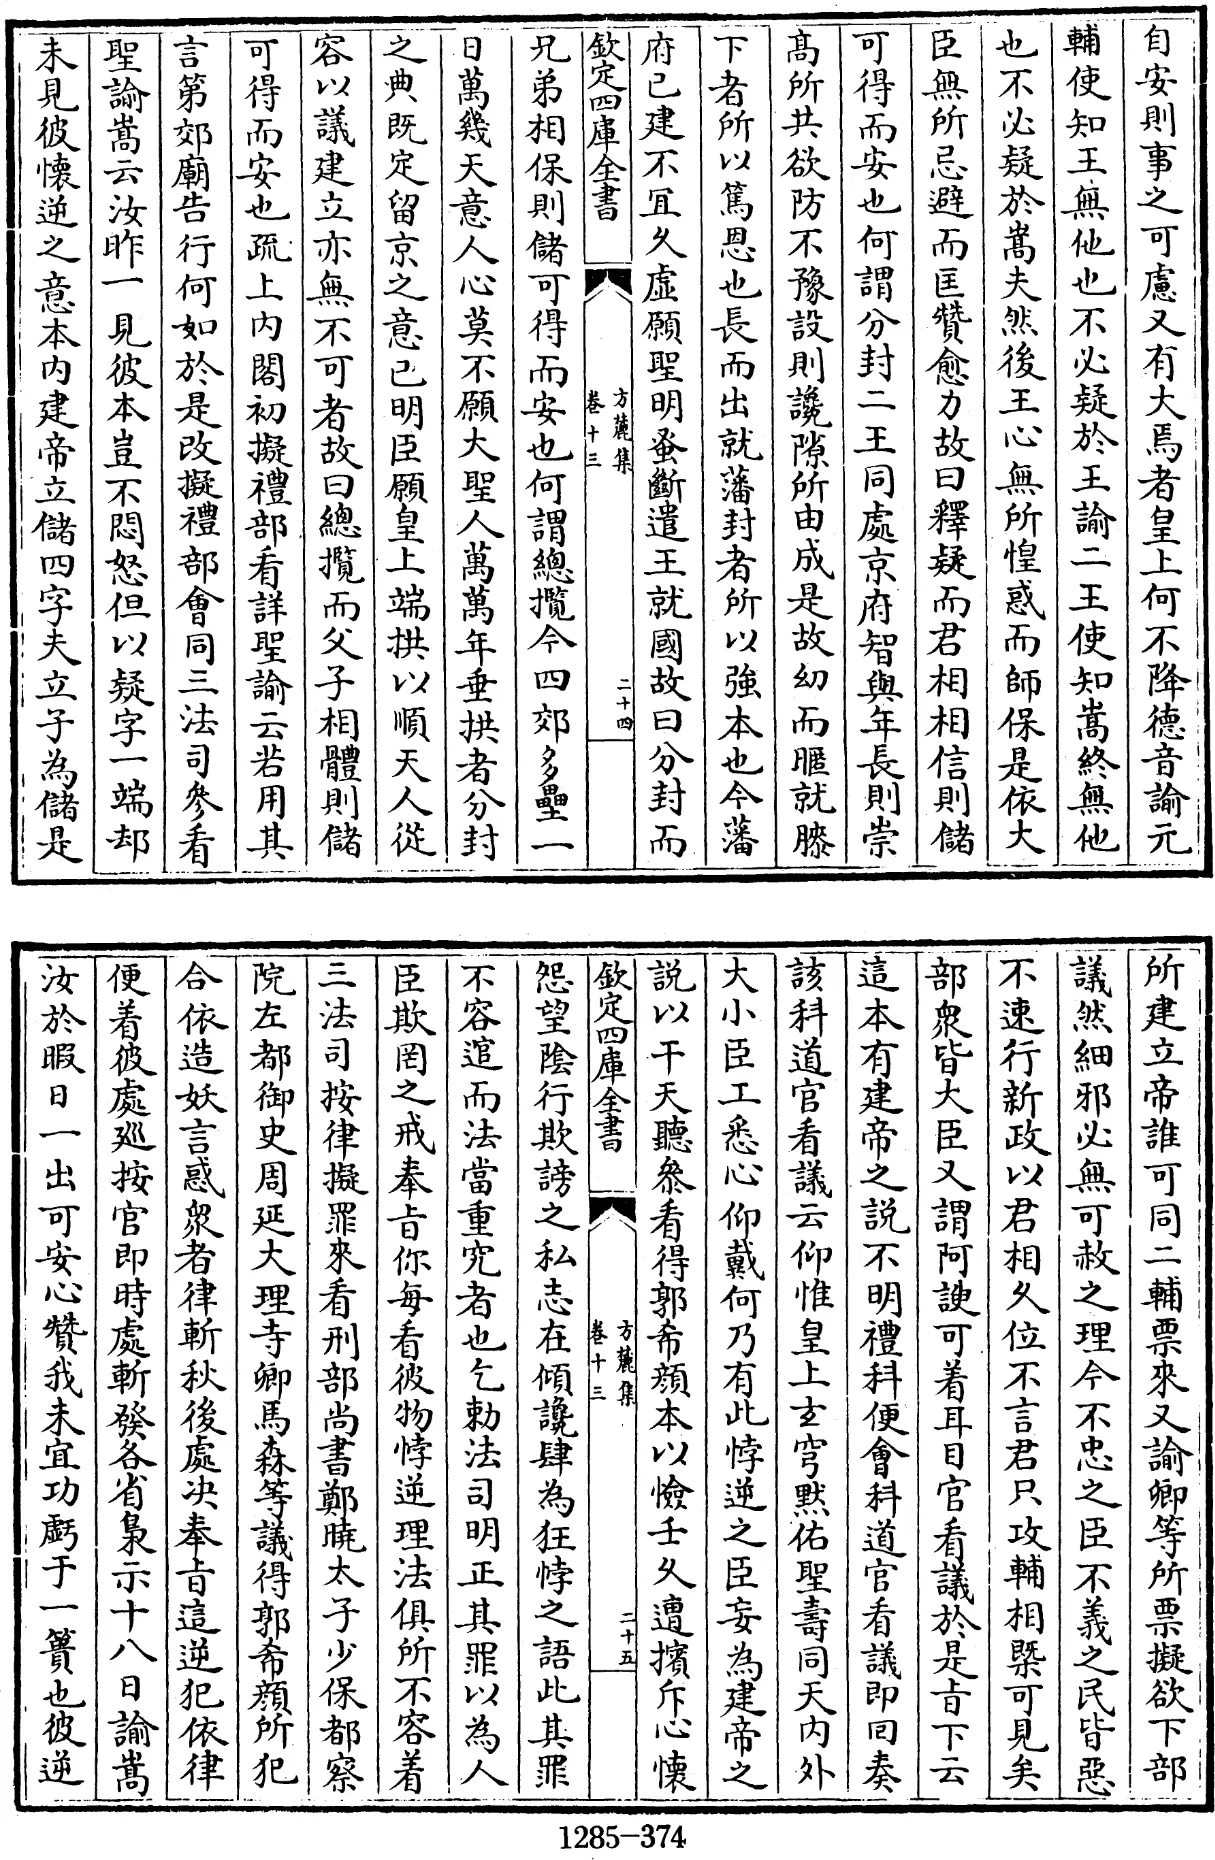 自安則事之可慮又有大焉者皇上何不降德音諭元
輔使知王無他也不必疑於王諭二王使知嵩終無他
也不必疑於嵩夫然後王心無所惶惑而師保是依大
臣無所忌避而匡贊愈力故曰釋疑而君相相信則儲
可得而安也何謂分封二王同處京府智與年長則崇
高所共欲防不豫設則讒隙所由成是故幼而暱就膝
下者所以篤恩也長而出就藩封者所以強本也今藩
府已建不宜久虛願聖明蚤斷遣王就國故曰分封而
欽定四庫全書
方麓集
卷十三
二十四
兄弟相保則儲可得而安也何謂總攬今四郊多壘一
日萬幾天意人心莫不願大聖人萬萬年垂拱者分封
之典既定留京之意已明臣願皇上端拱以順天人從
容以議建立亦無不可者故曰總攬而父子相體則儲
可得而安也疏上內閣初擬禮部看詳聖諭云若用其
言第郊廟告行何如於是改擬禮部會同三法司參看
聖諭嵩云汝昨一見彼本豈不悶怒但以疑字一端却
未見彼懷逆之意本內建帝立儲四字夫立子為儲是
所建立帝誰可同二輔票來又諭卿等所票擬欲下部
議然細邪必無可赦之理今不忠之臣不義之民皆惡
不速行新政以君相久位不言君只攻輔相槩可見矣
部衆皆大臣又謂阿諛可着耳目官看議於是旨下云
這本有建帝之說不明禮科便會科道官看議即回奏
該科道官看議云仰惟皇上玄穹默佑聖壽同天內外
大小臣工悉心仰戴何乃有此悖逆之臣妄為建帝之
說以干天聽叅看得郭希顏本以憸壬久遭擯斥心懷
欽定四庫全書
方麓集
卷十三
二十五
怨望陰行欺謗之私志在傾讒肆為狂悖之語此其罪
不容逭而法當重究者也乞勅法司明正其罪以為人
臣欺罔之戒奉旨你每看彼物悖逆理法俱所不容着
三法司按律擬罪來看刑部尚書鄭曉太子少保都察
院左都御史周延大理寺卿馬森等議得郭希顏所犯
合依造妖言惑衆者律斬秋後處決奉旨這逆犯依律
便着彼處廵按官即時處斬發各省梟示十八日諭嵩
汝於暇日一出可安心贊我未宜功虧于一簣也彼逆
1285-374